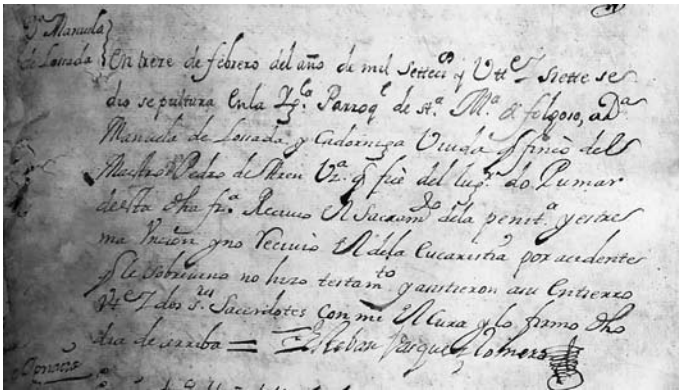 Dª Manuela
de Lossada
En treze de febrero del año de mil settecos y Vtte Z Siette se
dio sepultura En la Ygª. Parroql de stª. Mª. de folgoso, a Dª
Manuela de Lossada y Cadorniga Viuda q finco del
Maestro Pedro de Vzª. q fue del lugr do Pumar
desta dha frª. Recivio El Sacramto de la penitª. y estre
ma Vncion y no Recivio El de la Eucaristia por acidentes
q le sobrevino no hizo testamto y assistieron a su Entierro
Vte Z dos srs Sacerdotes Con mi El Cura y lo firmo dho
dia de arriba = Esteban Vasquez Romero